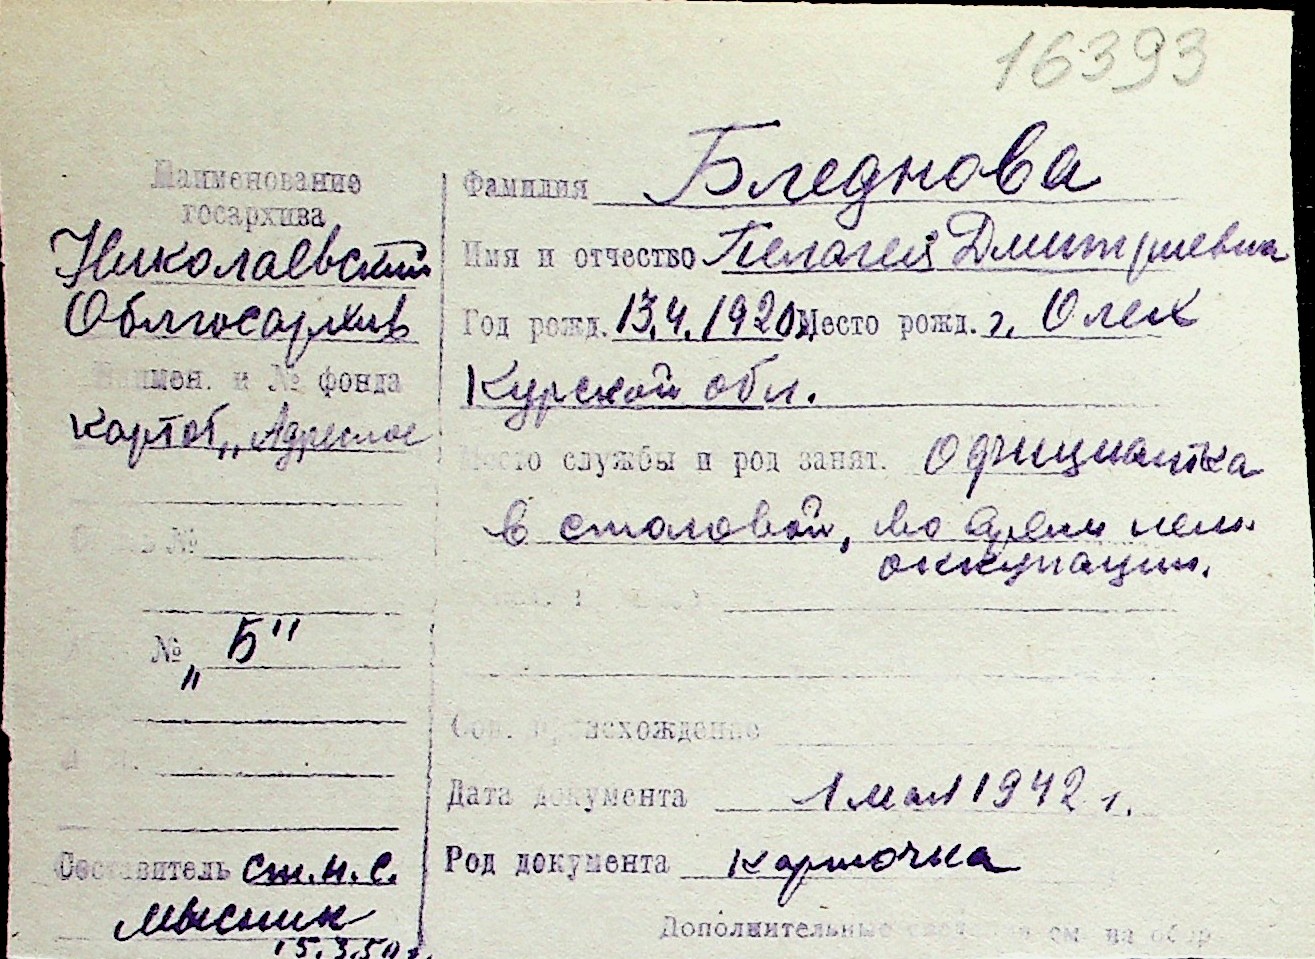 16393
Наименование
госархива
Николаевский
Облгосархив
Наимен. и № фонда
Картот. „Адресное
Опись №
№ „Б"
Составитель Ст.н.с.
Мысник
15.3.50 г.
Фамилия Бледнова
Имя и отчество Пелагея Дмитриевна
Год рожд. 13.4.1920 Место рожд. г. Олех
Курской обл.
Место службы и род занят. Официантка
в столовой, во время нем.
оккупации.
Соц. происхождение
Дата документа 1 мая 1942 г.
Род документа карточка
Дополнительные сведения см. на обор.